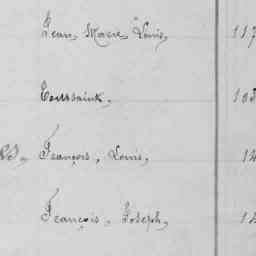 Jean, Marie, Louis, 117
Toussaint, 103
François, Louis, 14
François, Joseph, 14